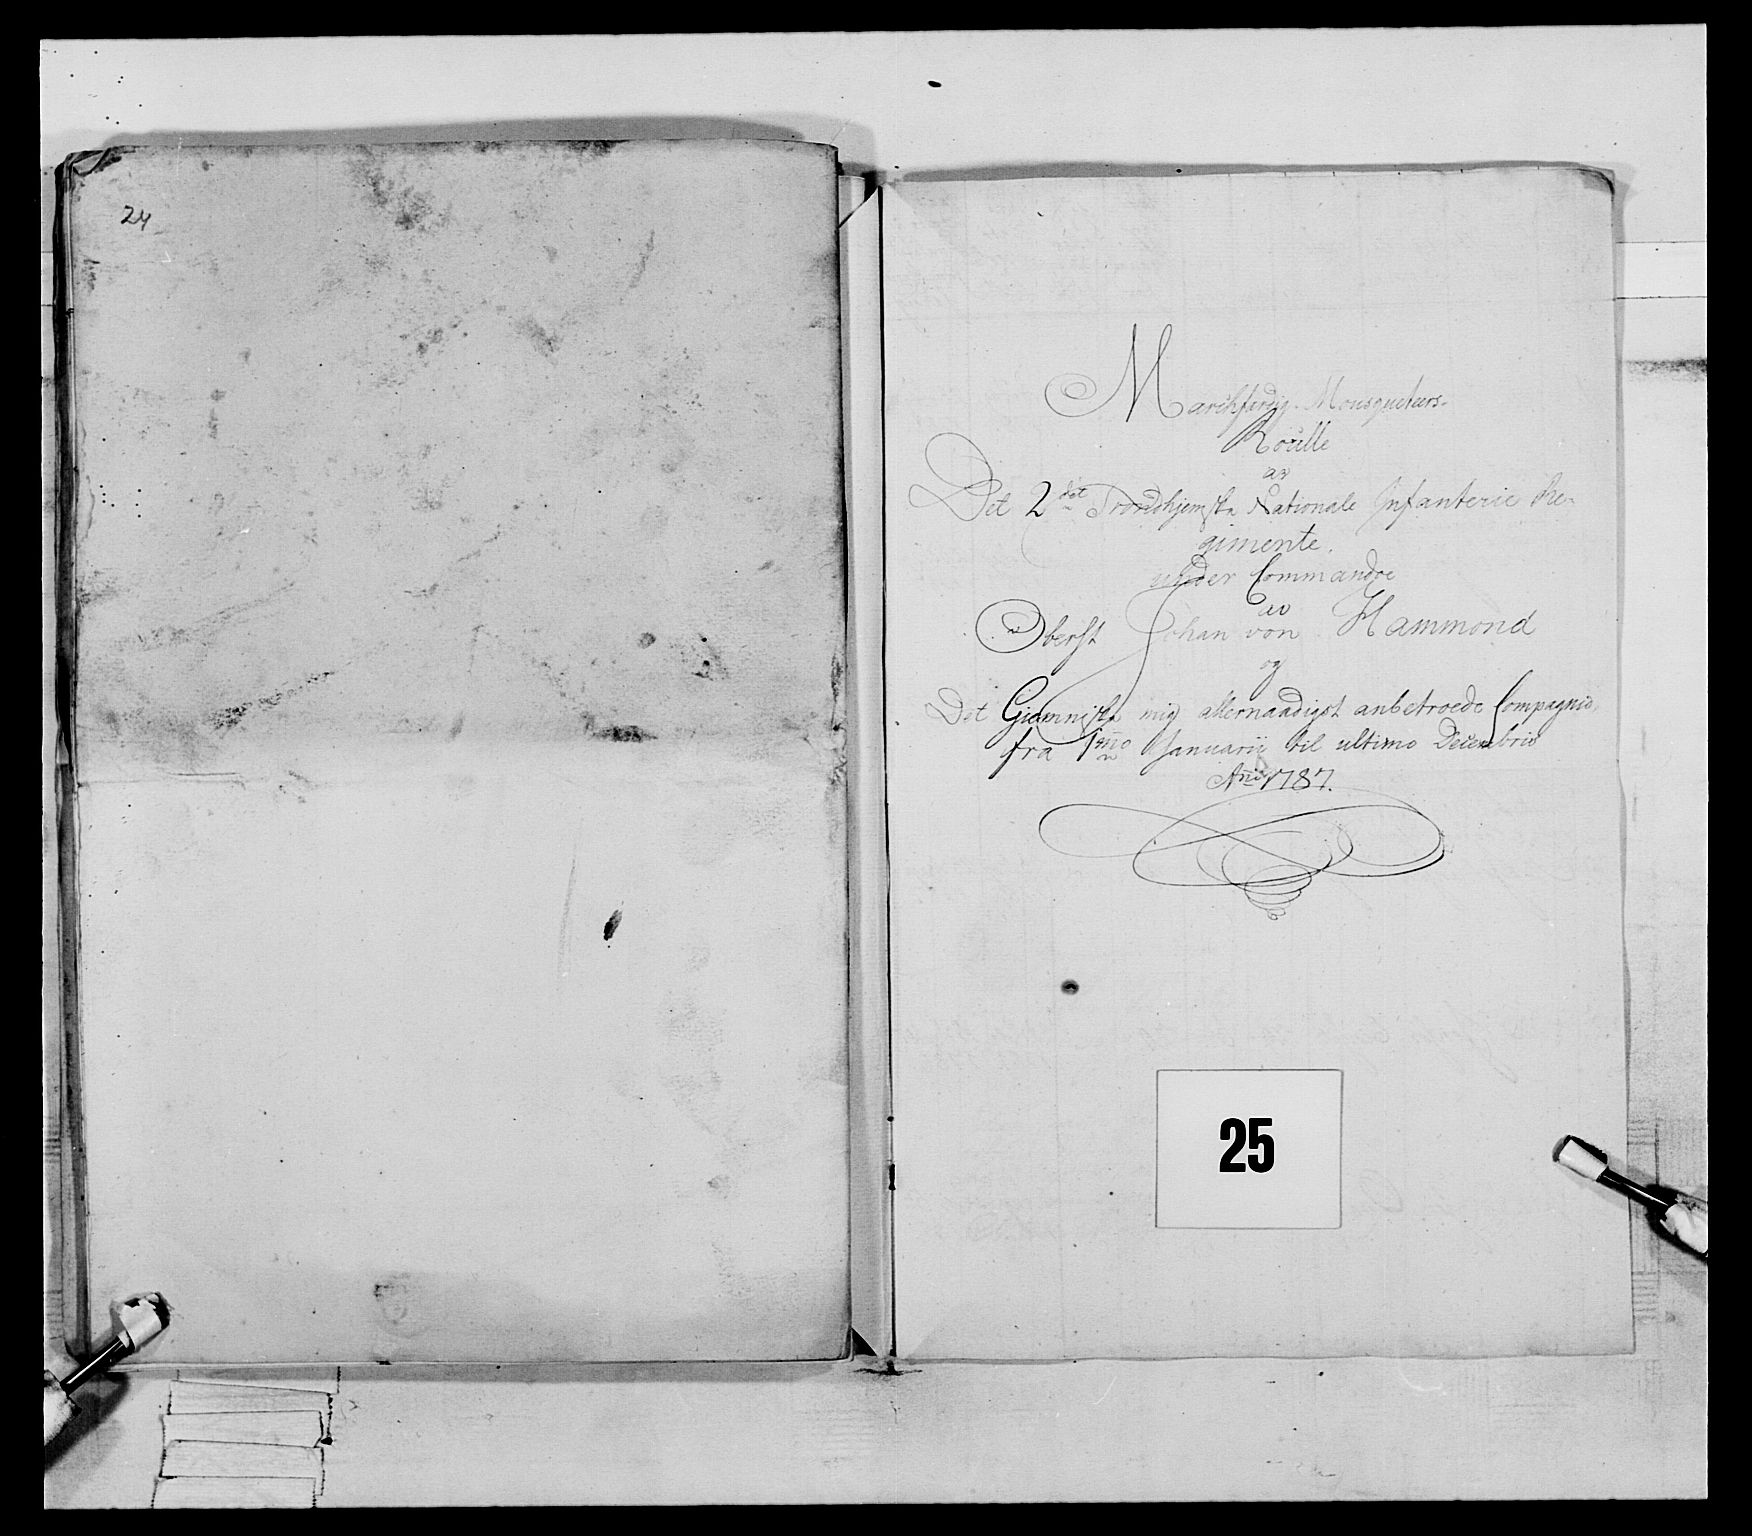 24
Marchferdig Mousqueteers-
Roulle
av
Det 2det Trondhjemske Nationale Infanterie Re-
gimente.
under Commandoe
av
Oberst Johan von Hammond
og
Det Giemniske mig allernaadigst anbetroede Compagnie,
fra 1mo Januarii til ultimo Decembris
Año 1787.
25